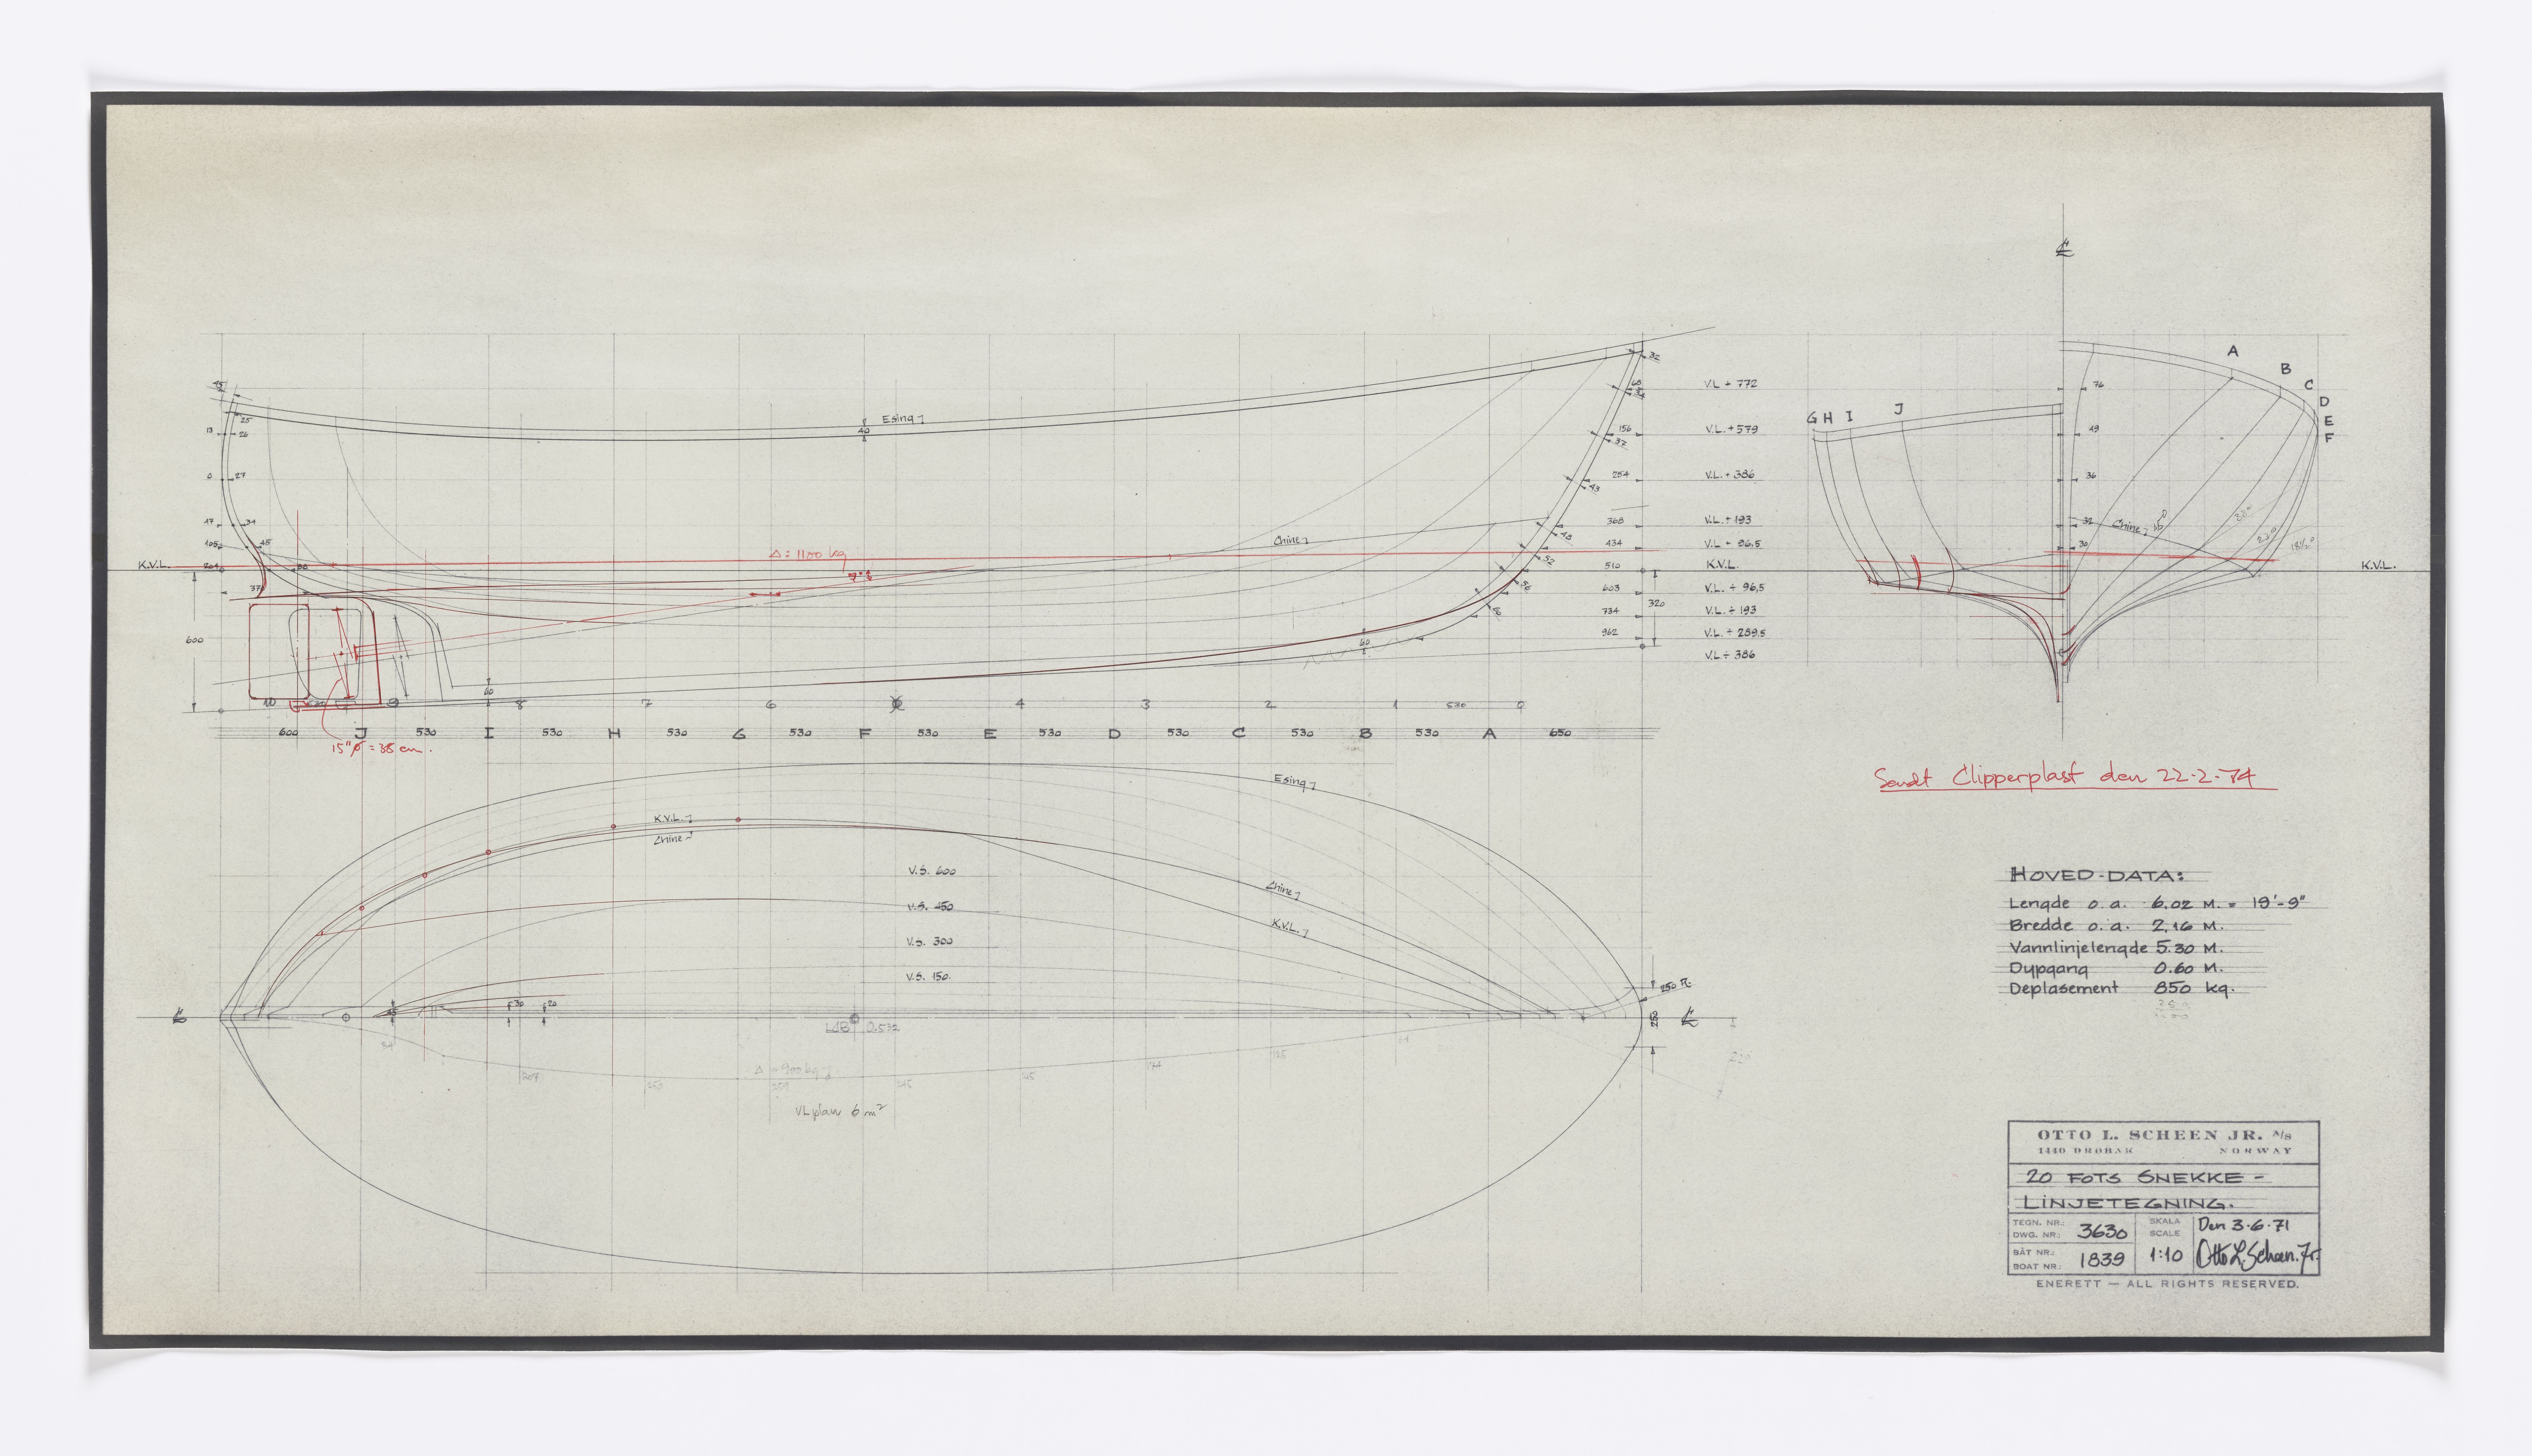 ℄
A
B
C
D
E
F
G H I J
32
V.L + 772
76
Esing
40
25
26
156
V.L. + 579
49
0
27
254
V.L. + 386
36
43
34
368
V.L. + 193
32
Chine
Chine
434
V.L + 96,5
30
Δ = 1100 kg
K.V.L.
510
K.V.L.
K.V.L.
603
V.L. ÷ 96,5
320
734
V.L. ÷ 193
600
962
V.L. ÷ 289,5
60
V.L ÷ 386
10 9 8 7 6 4 3 2 1 530 0
600 J 530 I 530 H 530 G 530 F 530 E 530 D 530 C 530 B 530 A 650
15"ø = 38 cm.
Sendt Clipperplast den 22-2-74
Esing
K.V.L.
Chine
V.S. 600
Chine
V.S. 450
K.V.L.
V.S. 300
V.S. 150
250 R.
℄
℄
250
LCB 0.532
Δ = 900 kg
VLplan 6 m²
HOVED-DATA:
Lengde o.a. 6,02 M. = 19'-9"
Bredde o.a. 2,16 M.
Vannlinjelengde 5.30 M.
Dypgang 0.60 M.
Deplasement 850 kg.
OTTO L. SCHEEN JR. A/S
1440 DRØBAK NORWAY
20 FOTS SNEKKE -
LINJETEGNING.
TEGN. NR.:
DWG. NR.: 3630
SKALA
SCALE
1:10
Den 3-6-71
BÅT NR.:
BOAT NR.: 1839
Otto L. Scheen. Jr.
ENERETT — ALL RIGHTS RESERVED.